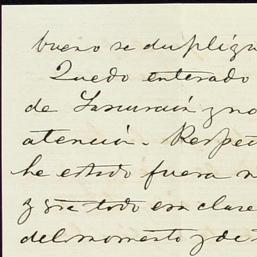 bueno se dupliqu
Quedo enterado
de Lascurain y no
atención. Respec
he estado fuera
y sin todo esa clase
del momento y de